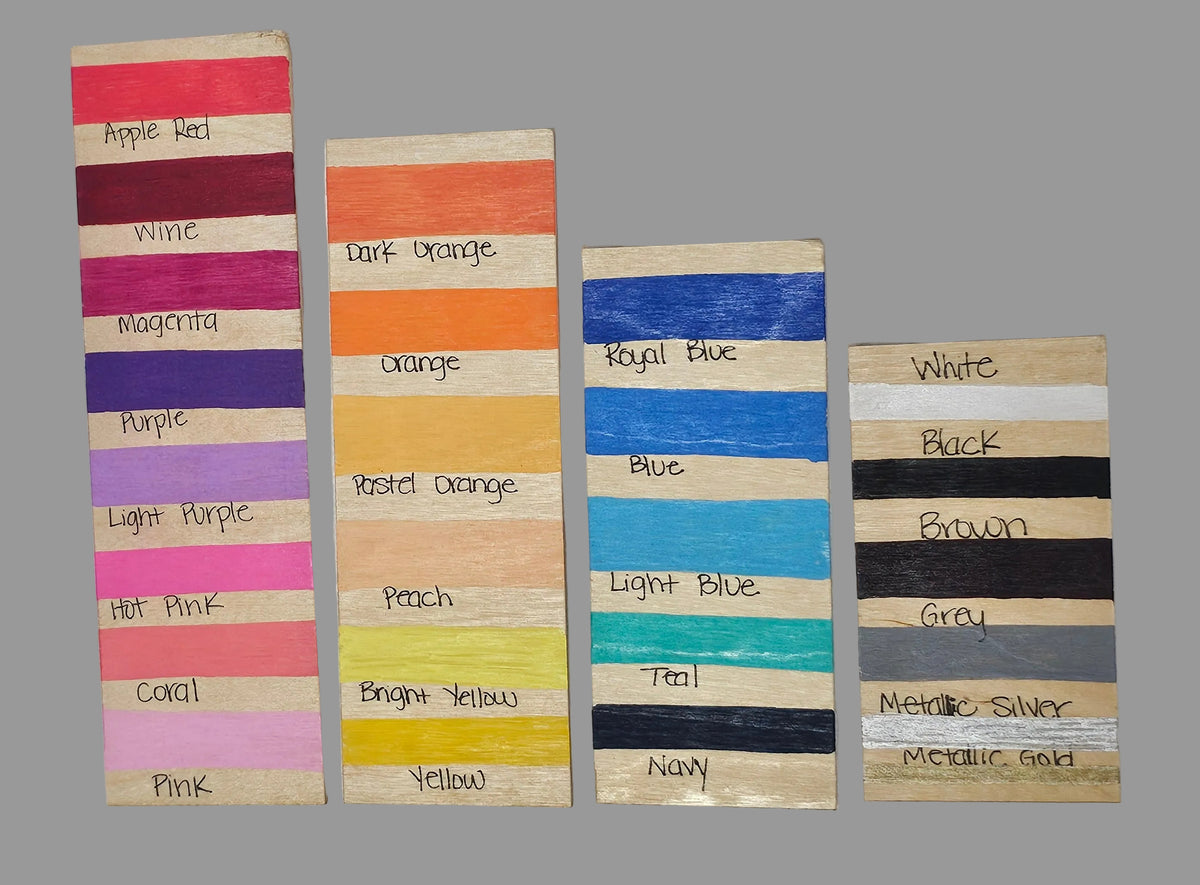 Apple Red
Wine
Magenta
Purple
Light Purple
Hot Pink
Coral
Pink
Dark Orange
Orange
Pastel Orange
Peach
Bright Yellow
Yellow
Royal Blue
Blue
Light Blue
Teal
Navy
White
Black
Brown
Grey
Metallic Silver
Metallic Gold